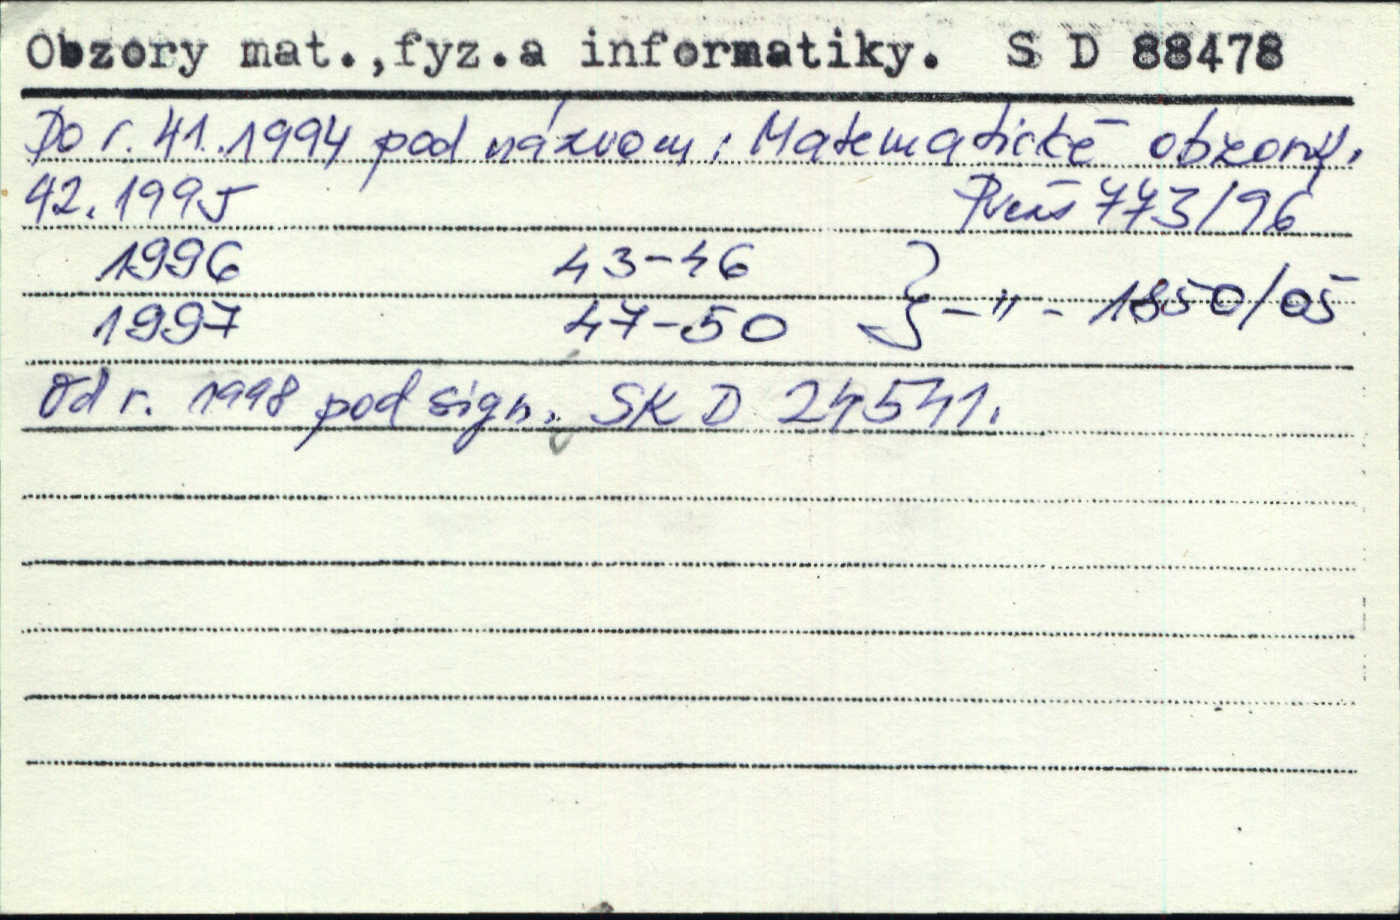 Obzory mat.,fyz.a informatiky. S D 88478
Do r. 41.1994 pod názvom: Matematické obzory.
42.1995 Preš 773/96
1996 43-46
1997 47-50 } - " - 1850/05
Od r. 1998 pod sign. SK D 24541.